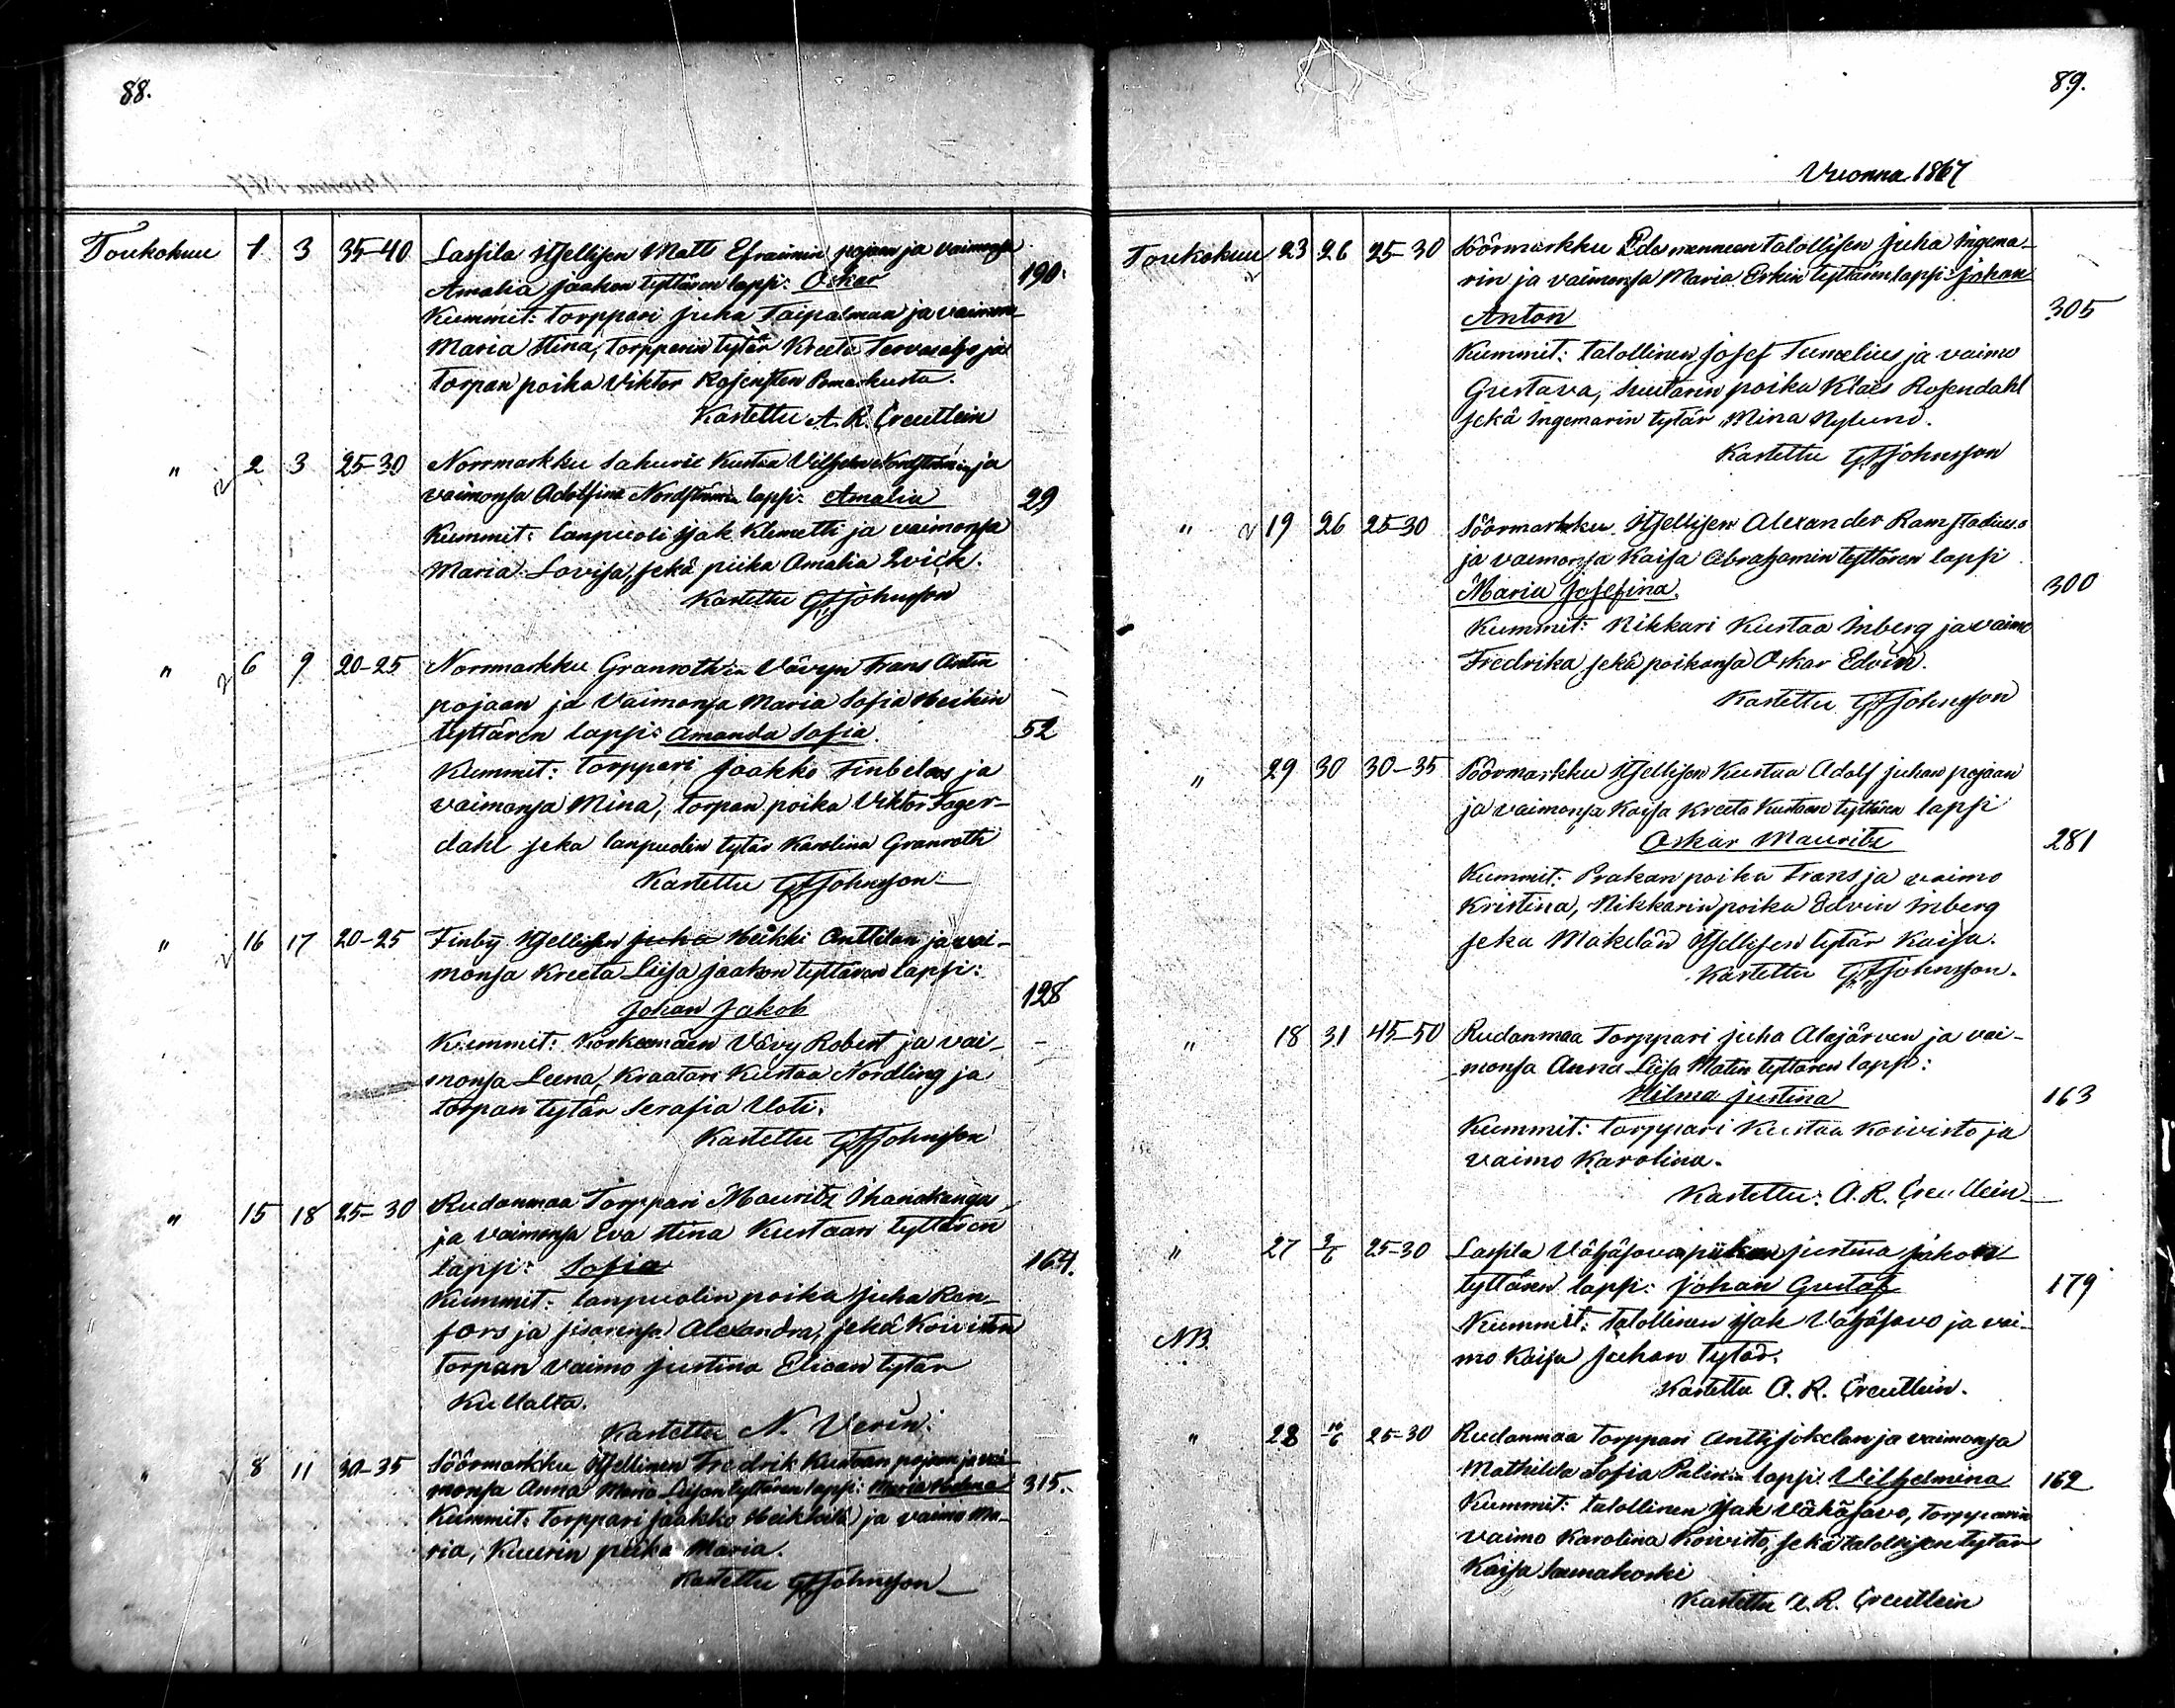 88.
Toukokuu 1 3 35-40 Lassila Itsellisen Matts Efraimin pojan ja vaimonsa
Amalia Jaakon tyttären lapsi: Oskar 190.
Kummit: torppari Juha Taipalmaa ja vaimo
Maria Stina, torpparin tytär Kreeta Tervasalo ja
torpan poika Viktor Rosensten Pomarkusta.
Kastettu A. R. Creutlein
" 2 3 25-30 Norrmarkku Sahurie Kustaa Vilhelm Nordströmin ja
vaimonsa Adolfina Nordströmin lapsi: Amalia 29
Kummit: lanpuoli Isak Klemetti ja vaimonsa
Maria Lovisa, sekä piika Amalia Qvick.
Kastettu GFJohnsson
" 6 9 20-25 Norrmarkku Granrothin Vävyn Frans Antin
pojaan ja Vaimonsa Maria Sofia Heikin
tyttären lapsi: Amanda Sofia. 52
Kummit: torppari Jaakko Finbelas ja
vaimonsa Mina, torpan poika Viktor Fager-
dahl seka lanpuolin tytär Karolina Granroth
Kastettu GFJohnsson
" 16 17 20-25 Finby Itsellisen Juha Heikki Anttilan ja vai-
monsa Kreeta Liisa Jaakon tyttären lapsi:
Johan Jakob 128
Kummit: Korkeemäen Vävy Robert ja vai-
monsa Leena, Kraatari Kustaa Nordling ja
torpan tytär Serafia Uoti.
Kastettu GFJohnsson
" 15 18 25-30 Rudanmaa Torppari Mauritz Ihanakangas
ja vaimonsa Eva Stina Kustaan tyttären
lapsi: Sofia 164.
Kummit: lanpuolin poika Juha Ran-
fors ja sisarensa Alexandra, sekä Koiviston
torpan vaimo Justina Elican tytär
Kullalta.
Kastettu N. Verin.
" 8 11 30-35 Söörmarkku Itsellinen Fredrik Kustaan pojan ja vai-
monsa Anna Maria Liisan tyttären lapsi: Maria 315.
Kummit: torppari Jaakko Heikkilä ja vaimo Ma-
ria, Kuurin piika Maria.
Kastettu GFJohnsson
89.
Vuonna 1867
Toukokuu 23 26 25-30 Söörmarkku talollisen Juha Ingema-
rin ja vaimonsa Maria Erkin tyttären lapsi: Johan
Anton 305
Kummit: talollinen Josef Tumelius ja vaimo
Gustava, Suutarin poika Klaes Rosendahl
sekä Ingemarin tytär Mina Nylund.
Kastettu GFJohnsson
" 19 26 25-30 Söörmarkku Itsellisen Alexander Ramstadius
ja vaimonsa Kaisa Abrahamin tyttären lapsi
Maria Josefina. 300
Kummit: Nikkari Kustaa Inberg ja vaimo
Fredrika sekä poikansa Oskar Edvin.
Kastettu GFJohnsson
" 29 30 30-35 Söörmarkku Itsellisen Kustaa Adolf Juhan pojaan
ja vaimonsa Kaisa Kreeta Kustaan tyttären lapsi
Oskar Mauritz 281
Kummit: Prakan poika Frans ja vaimo
Kristina, Nikkarin poika Edvin Inberg
seka Mäkelän Itsellisen tytär Kaisa.
Kastettu GFJohnsson.
" 18 31 45-50 Rudanmaa Torppari Juha Alajärven ja vai-
monsa Anna Liisa Matin tyttären lapsi:
Hilma Justina 163
Kummit: torppari Kustaa Koivisto ja
vaimo Karolina.
Kastettu: A. R. Creutlein
" 27 2/6 25-30 Lassila Vähäsavon piikan Justina Jakon
tyttären lapsi: Johan Gustaf 179
NB. Kummit: talollinen Isak Vähäsavo ja vai-
mo Kaisa Juhan tytär.
Kastettu A. R. Creutlein.
" 28 10/6 25-30 Rudanmaa torppari Antti Jokelan ja vaimonsa
Mathilda Sofia Palinin lapsi: Vilhelmina 162
Kummit: talollinen Isak Vähäsavo, torpparin
vaimo Karolina Koivisto, sekä talollisen tytär
Kaisa Saunakoski
Kastettu A. R. Creutlein